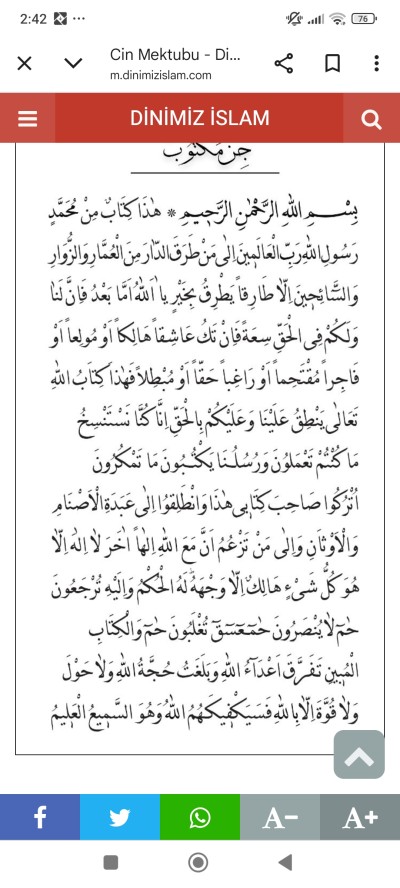 2:42 ... 76
Cin Mektubu - Di...
m.dinimizislam.com
DİNİMİZ İSLAM
جِنْ مَكْتُوبِ
بِسْــمِ اللهِ الرَّحْمٰنِ الرَّحِيمِ * هٰذَا كِتَابٌ مِنْ مُحَمَّدٍ
رَسُولِ اللهِ رَبِّ الْعَالَمِينَ اِلٰى مَنْ طَرَقَ الدَّارَ مِنَ الْعُمَّارِ وَالزُّوَارِ
وَالسَّائِحِينَ اِلَّا طَارِقاً يَطْرِقُ بِخَيْرٍ يَا اَللهُ اَمَّا بَعْدُ فَاِنَّ لَنَا
وَلَكُمْ فِى الْحَقِّ سِعَةً فَاِنْ تَكُ عَاشِقاً هَالِكاً اَوْ مُولِعاً اَوْ
فَاجِراً مُقْتَحِماً اَوْ رَاغِباً حَقّاً اَوْ مُبْطِلاً فَهٰذَا كِتَابُ اللهِ
تَعَالٰى يَنْطِقُ عَلَيْنَا وَعَلَيْكُمْ بِالْحَقِّ اِنَّا كُنَّا نَسْتَنْسِخُ
مَا كُنْتُمْ تَعْمَلُونَ وَرُسُلُنَا يَكْتُبُونَ مَا تَمْكُرُونَ
اُتْرُكُوا صَاحِبَ كِتَابِى هٰذَا وَانْطَلِقُوا اِلٰى عَبَدَةِ الْاَصْنَامِ
وَالْاَوْثَانِ وَاِلٰى مَنْ تَزْعُمُ اَنَّ مَعَ اللهِ اِلٰهاً اٰخَرَ لَا اِلٰهَ اِلَّا
هُوَ كُلُّ شَىْءٍ هَالِكٌ اِلَّا وَجْهَهُ لَهُ الْحُكْمُ وَاِلَيْهِ تُرْجَعُونَ
حٰمٓ لَا يُنْصَرُونَ حٰمٓعٓسٓقٓ تُغْلَبُونَ حٰمٓ وَالْكِتَابِ
الْمُبِينِ تَفَرَّقَ اَعْدَاءُ اللهِ وَبَلَغَتْ حُجَّةُ اللهِ وَلَا حَوْلَ
وَلَا قُوَّةَ اِلَّا بِاللهِ فَسَيَكْفِيكَهُمُ اللهُ وَهُوَ السَّمِيعُ الْعَلِيمُ
A− A+